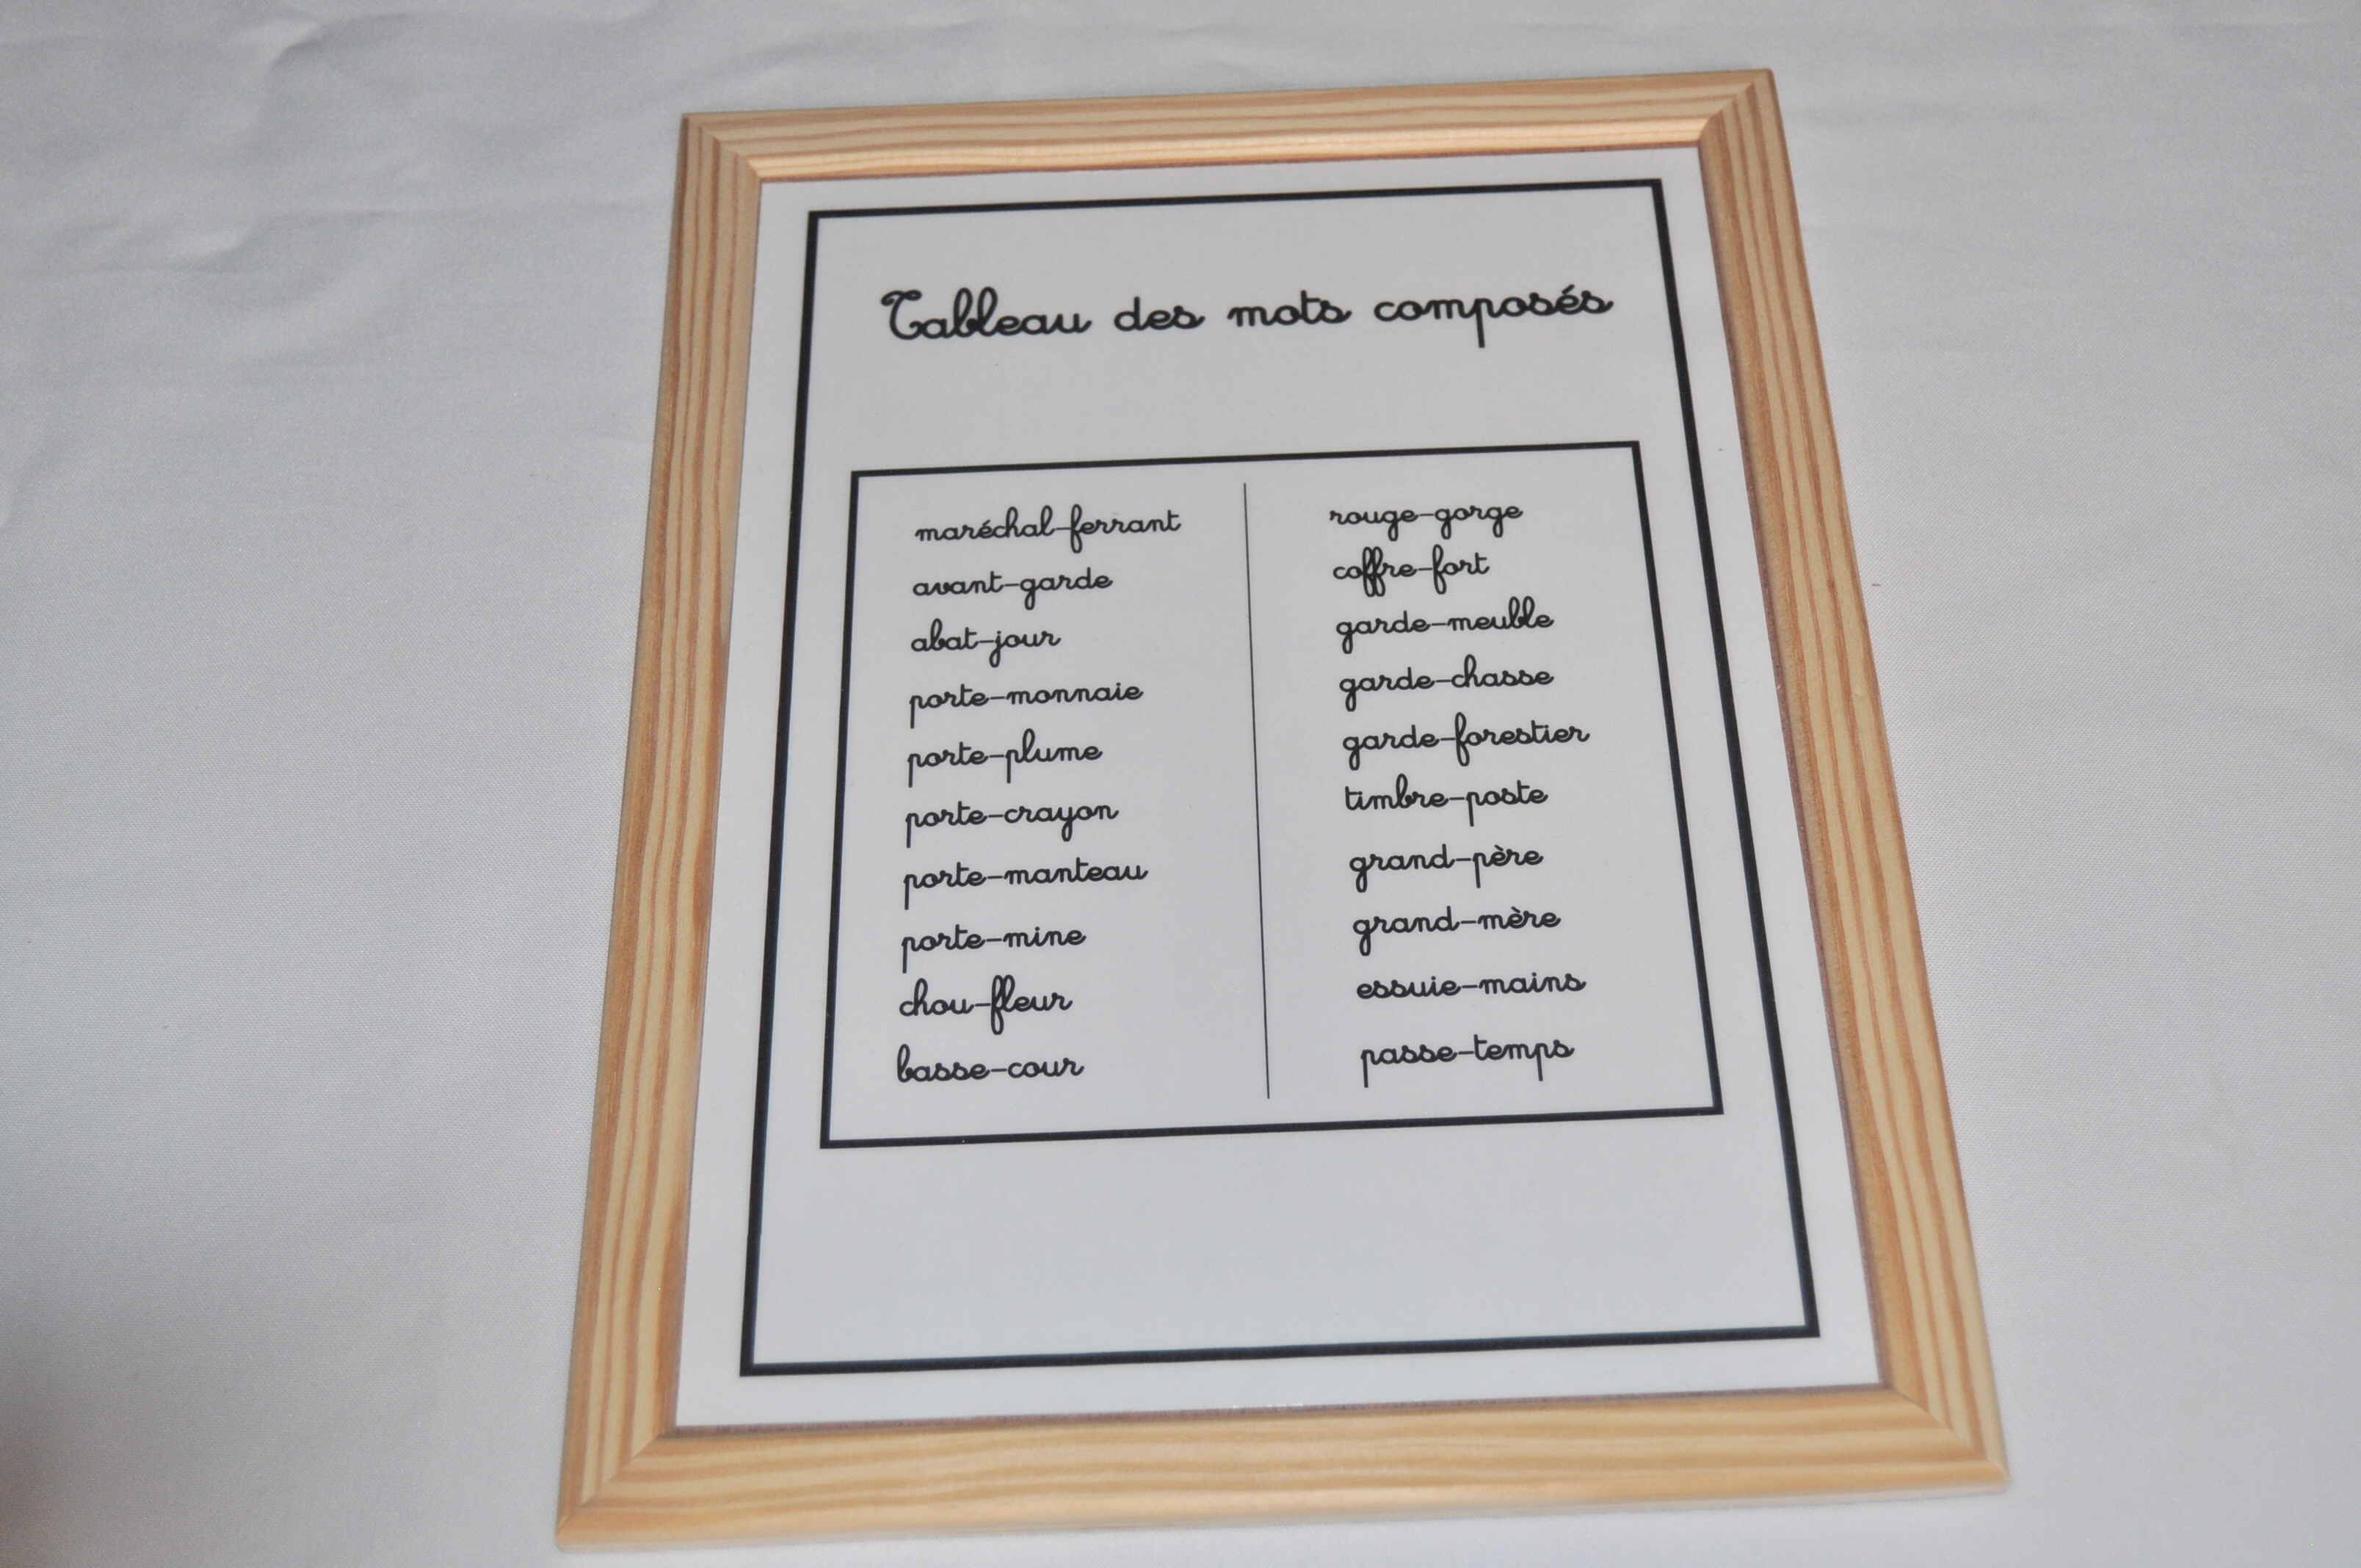 Tableau des mots composés
maréchal-ferrant
avant-garde
abat-jour
porte-monnaie
porte-plume
porte-crayon
porte-manteau
porte-mine
chou-fleur
basse-cour
rouge-gorge
coffre-fort
garde-meuble
garde-chasse
garde-forestier
timbre-poste
grand-père
grand-mère
essuie-mains
passe-temps